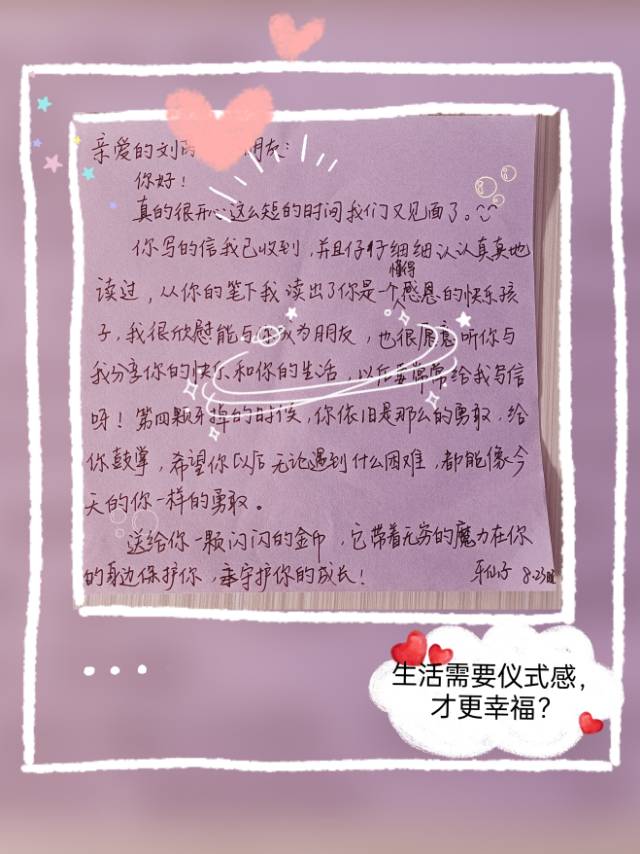 亲爱的刘 朋友：
你好！
真的很开心这么短的时间我们又见面了。
你写的信我已收到，并且仔仔细细认认真真地
读过，从你的笔下我读出了你是个懂得感恩的快乐孩
子，我很欣慰能与你成为朋友，也很愿意听你与
我分享你的快乐和你的生活，以后要常常给我写信
呀！第四颗牙掉的时候，你依旧是那么的勇敢，给
你鼓掌，希望你以后无论遇到什么困难，都能像今
天的你一样的勇敢。
送给你一颗闪闪的金币，它带着无穷的魔力在你
的身边保护你，守护你的成长！
牙仙子 8.23
生活需要仪式感，
才更幸福？